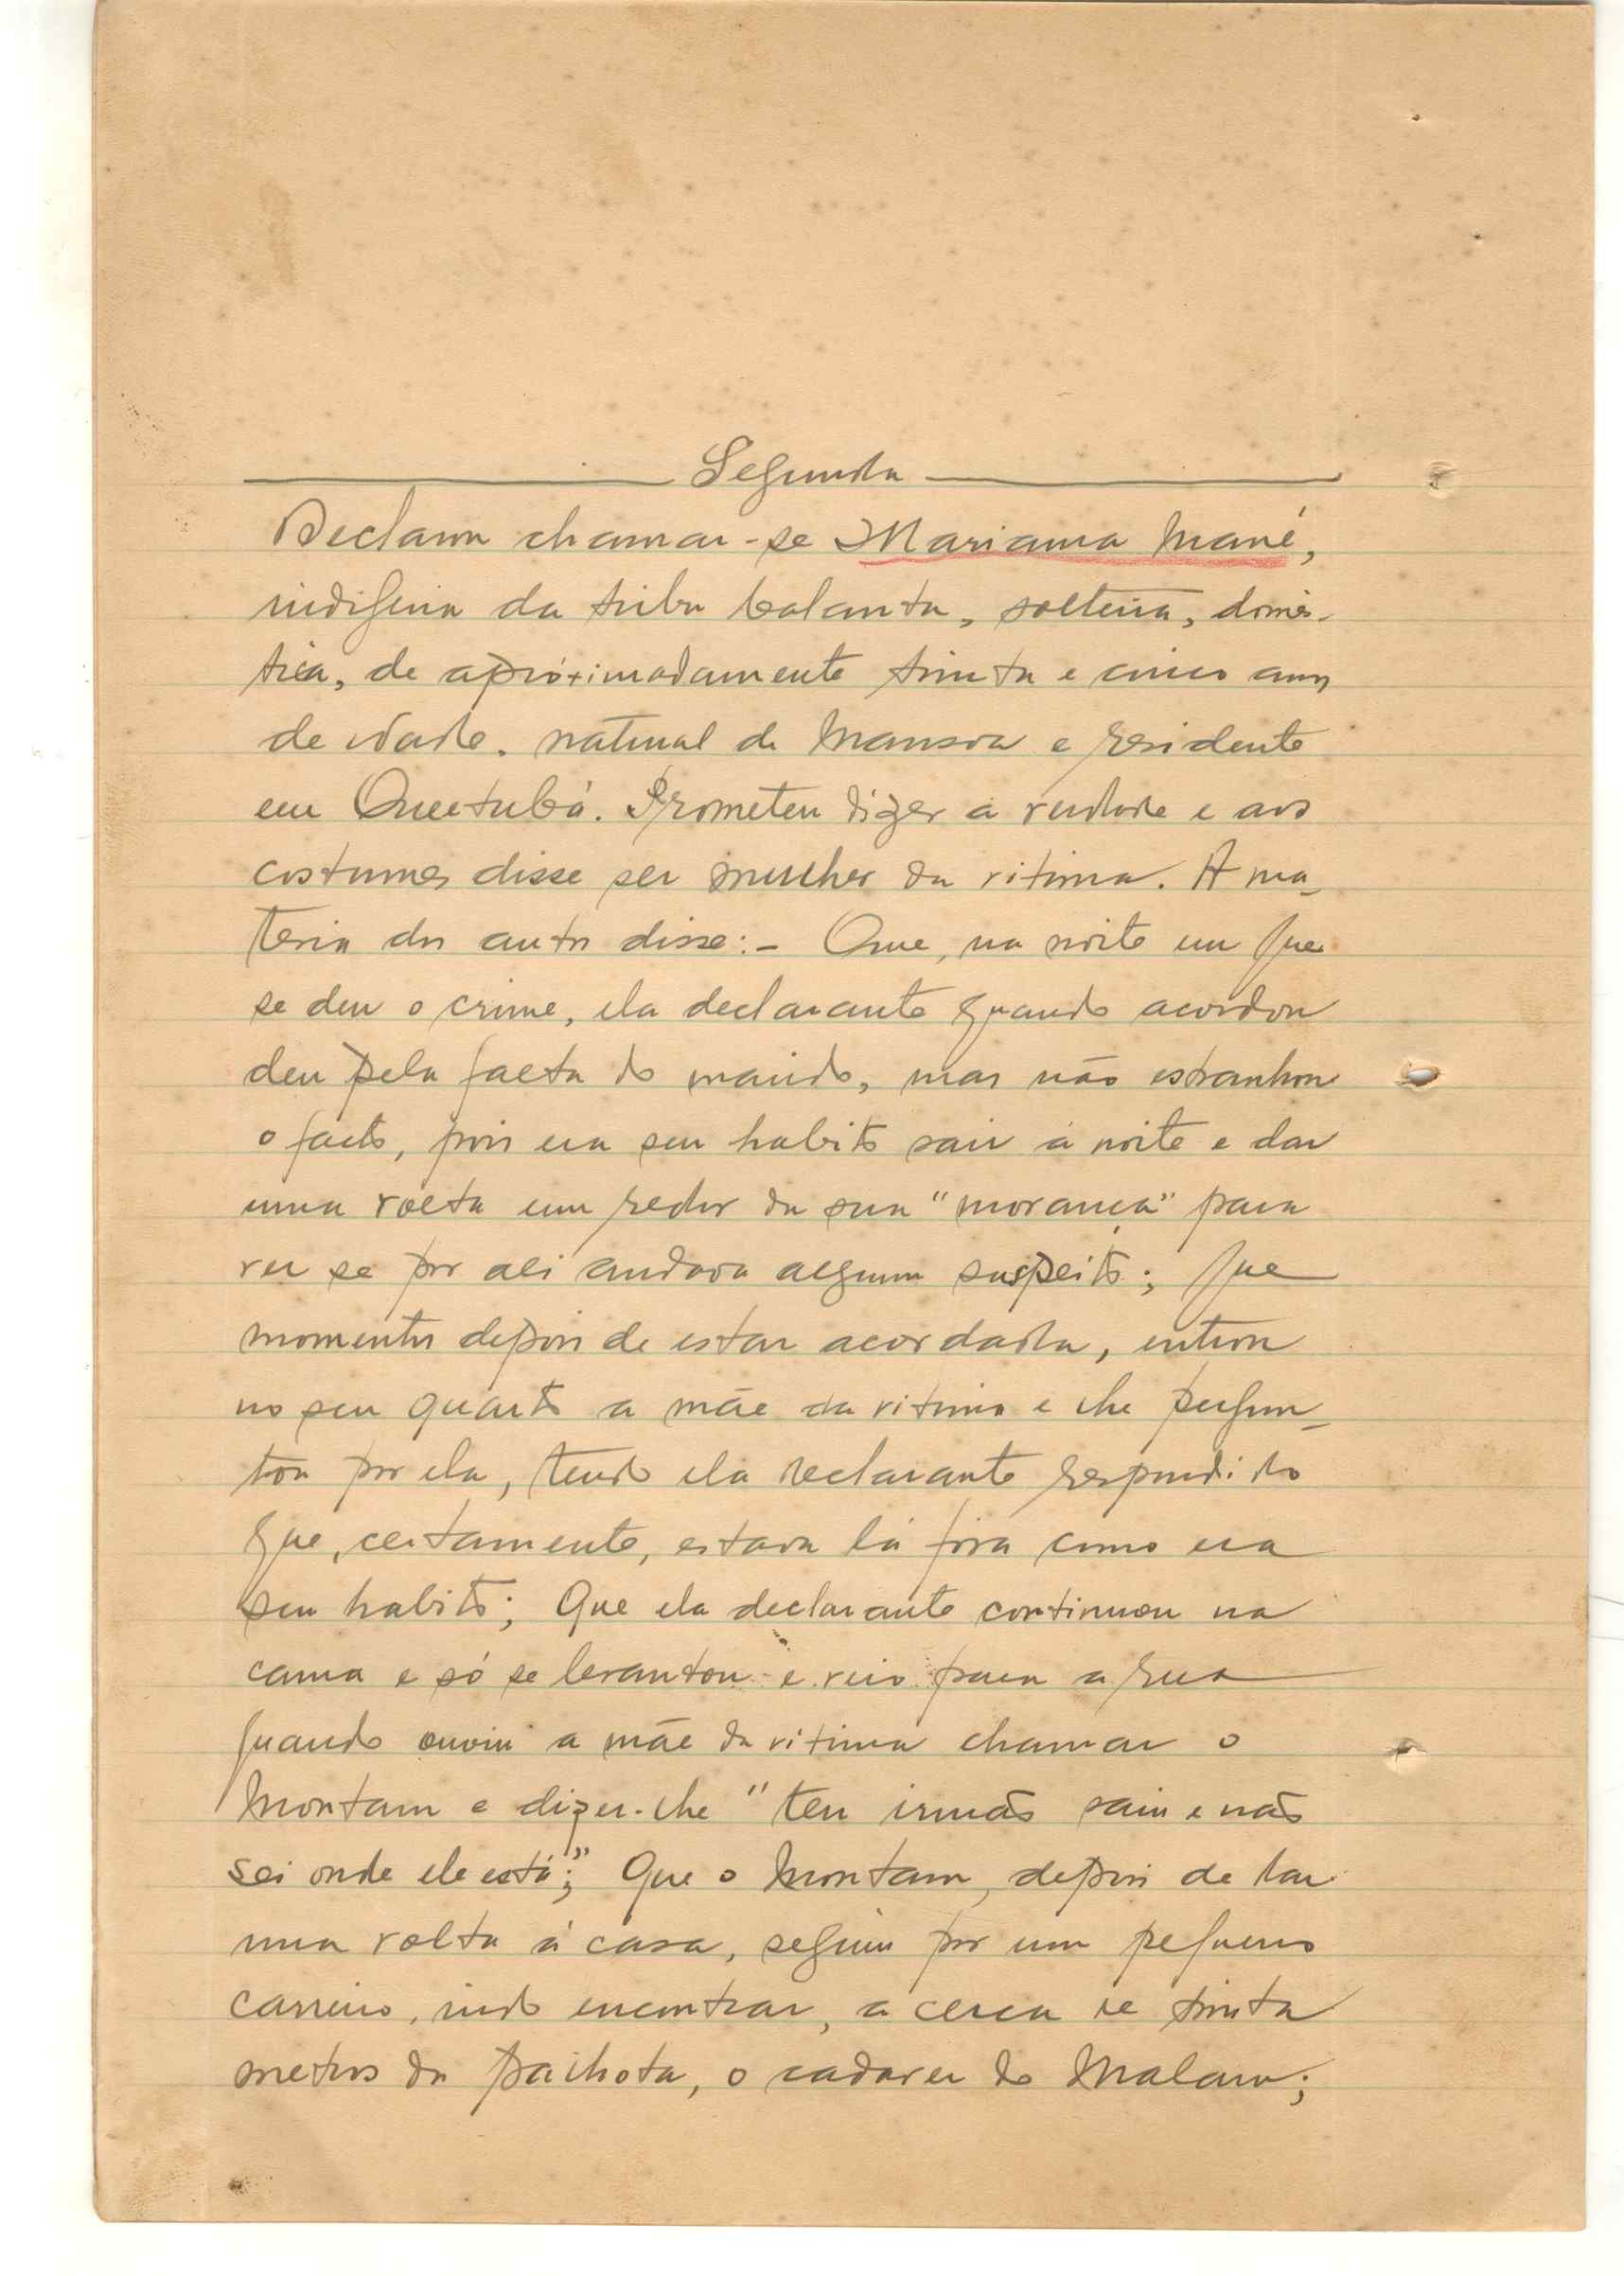 Segunda
Declarou chamar-se Mariama Mané,
indigena da tribu balanta, solteira, domés-
tica, de apróximadamente trinta e cinco anos
de idade, natural de Mansoa e residente
em Quetubá. Prometeu dizer a verdade e aos
costumes disse ser mulher da vitima. A ma-
teria dos autos disse:- Que, na noite em que
se deu o crime, ela declarante quando acordou
deu pela falta do marido, mas não estranhou
o facto, pois era seu habito sair á noite e dar
uma volta em redor da sua "morança" para
ver se por ali andava algum suspeito; que
momentos depois de estar acordada, entrou
no seu quarto a mãe da vitima e lhe pergun-
tou por ela, tendo ela declarante respondido
que, certamente, estava lá fora como era
seu habito; Que ela declarante continuou na
cama e só se levantou e veio para a rua
quando ouviu a mãe da vitima chamar o
Montam e dizer-lhe "teu irmão saiu e não
sei onde ele está;" Que o Montam, depois de dar
uma volta á casa, seguiu por um pequeno
carreiro, indo encontrar, a cerca de trinta
metros da palhota, o cadaver do Malam;